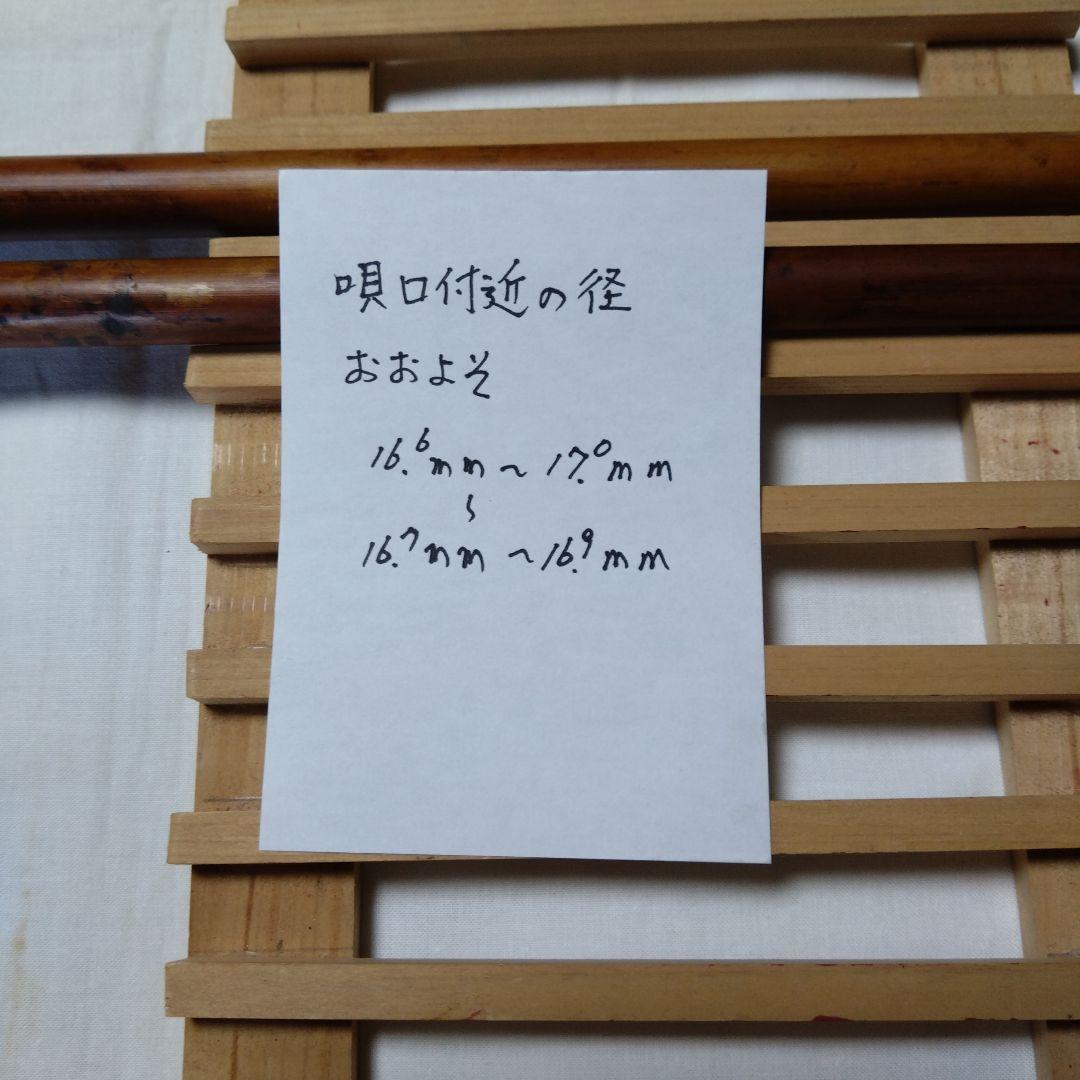 唄口付近の径
おおよそ
16.6mm〜17.0mm
〜
16.7mm〜16.9mm